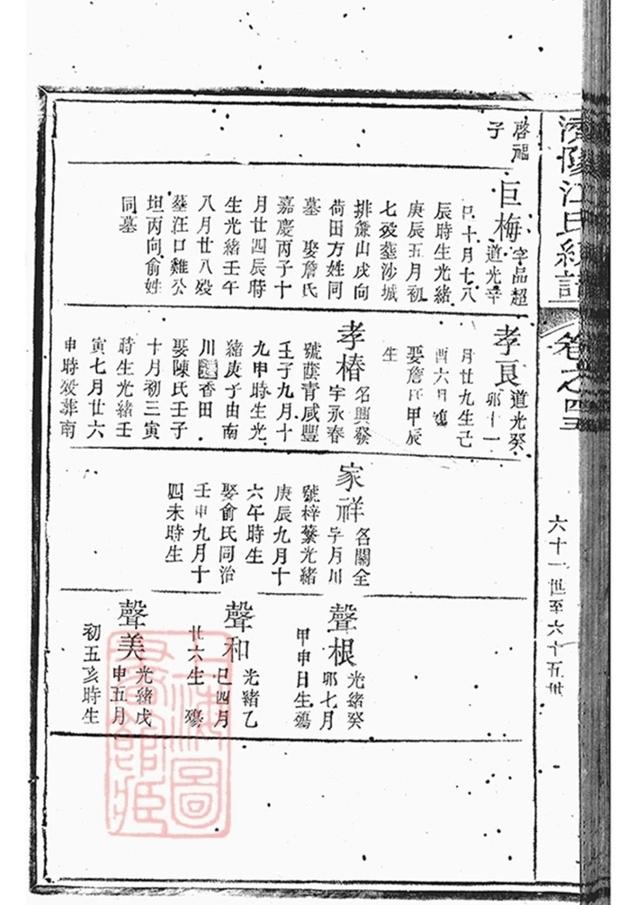 濟陽江氏統譜
卷之四
六十一世至六十五世
啓福
子
巨梅
字品超
道光辛
巳十月十八
辰時生光緒
庚辰五月初
七歿塟沙城
排鎌山戌向
荷田方姓同
墓 娶詹氏
嘉慶丙子十
月廿四辰時
生光緒壬午
八月廿八歿
塟汪口雞公
坦丙向俞姓
同墓
孝良
道光癸
卯十一
月廿九生己
酉六月殤
娶詹氏甲辰
生
孝椿
名興發
字永春
號蔭青咸豐
壬子九月十
九申時生光
緒庚子由南
川遷香田
娶陳氏壬子
十月初三寅
時生光緒壬
寅七月廿六
申時歿葬南
家祥
名關全
字月川
號梓蘩光緒
庚辰九月十
六午時生
娶俞氏同治
壬申九月十
四未時生
聲根
光緒癸
卯七月
甲申日生殤
聲和
光緒乙
巳四月
廿六生 殤
聲美
光緒戊
申五月
初五亥時生
上海圖
書館藏